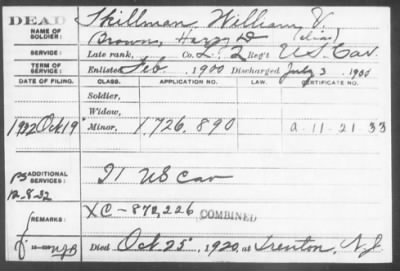 DEAD
NAME OF SOLDIER:
Skillman, William V.
Brown, Harry D (alias)
SERVICE: Late rank, Co. L. 2 Reg't U.S. Cav.
TERM OF SERVICE: Enlisted Feb. 1900 Discharged July 3 1900
DATE OF FILING. CLASS. APPLICATION NO. CERTIFICATE NO.
Soldier,
Widow,
1932 Oct 19 Minor, 1,726,890 a-11-21-33
ADDITIONAL SERVICES: 21 US Cav
12-8-32
REMARKS: XC-872,226 COMBINED
Died Oct. 25, 1920, at Trenton, N.J.